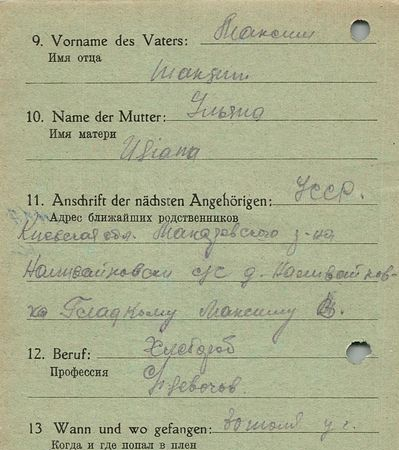 9. Vorname des Vaters: Максим
Имя отца
Maxim
10. Name der Mutter: Ульяна
Имя матери
Uljana
11. Anschrift der nächsten Angehörigen: УССР.
Адрес ближайших родственников
Киевская обл. Макаровского р-на
Наливайковски с/с д. Наливайков-
ка Гладкому Максиму
12. Beruf: Хлебороб
Профессия
13 Wann und wo gefangen:
Когда и где попал в плен